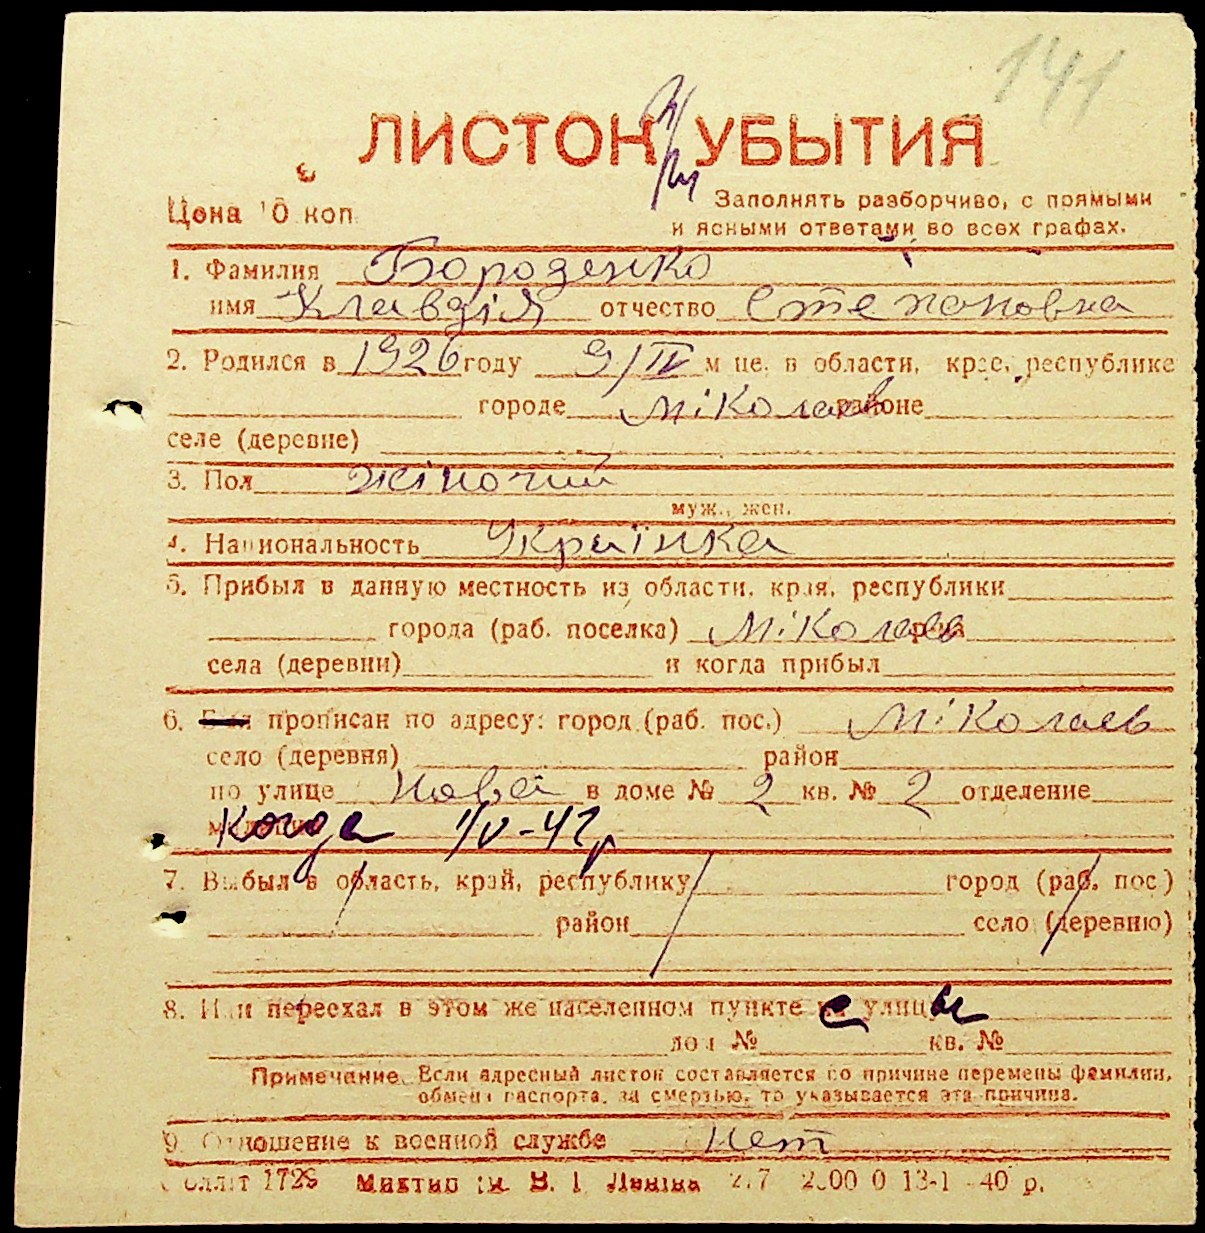 141
ЛИСТОК УБЫТИЯ
Цена 10 коп.
Заполнять разборчиво, с прямыми
и ясными ответами во всех графах.
1. Фамилия Бороденко
имя Клавдія отчество Степоновна
2. Родился в 1926 году 9/IV м-це, в области, крае, республике
городе Міколаев районе
селе (деревне)
3. Пол жіночий
муж., жен.
4. Национальность Українка
5. Прибыл в данную местность из области, края, республики
города (раб. поселка) Міколаев р-на
села (деревни) и когда прибыл
6. прописан по адресу: город (раб. пос.) Міколаев
село (деревня) район
по улице Новая в доме № 2 кв. № 2 отделение
Когда 1/V-42р
7. Выбыл в область, край, республику город (раб. пос.)
район село (деревню)
8. Или переехал в этом же населенном пункте с улицы
дом № кв. №
Примечание. Если адресный листок составляется по причине перемены фамилии,
обмена паспорта, за смертью, то указывается эта причина.
9. Отношение к военной службе нет
1726 им. В. І. Леніна 13-1-40 р.